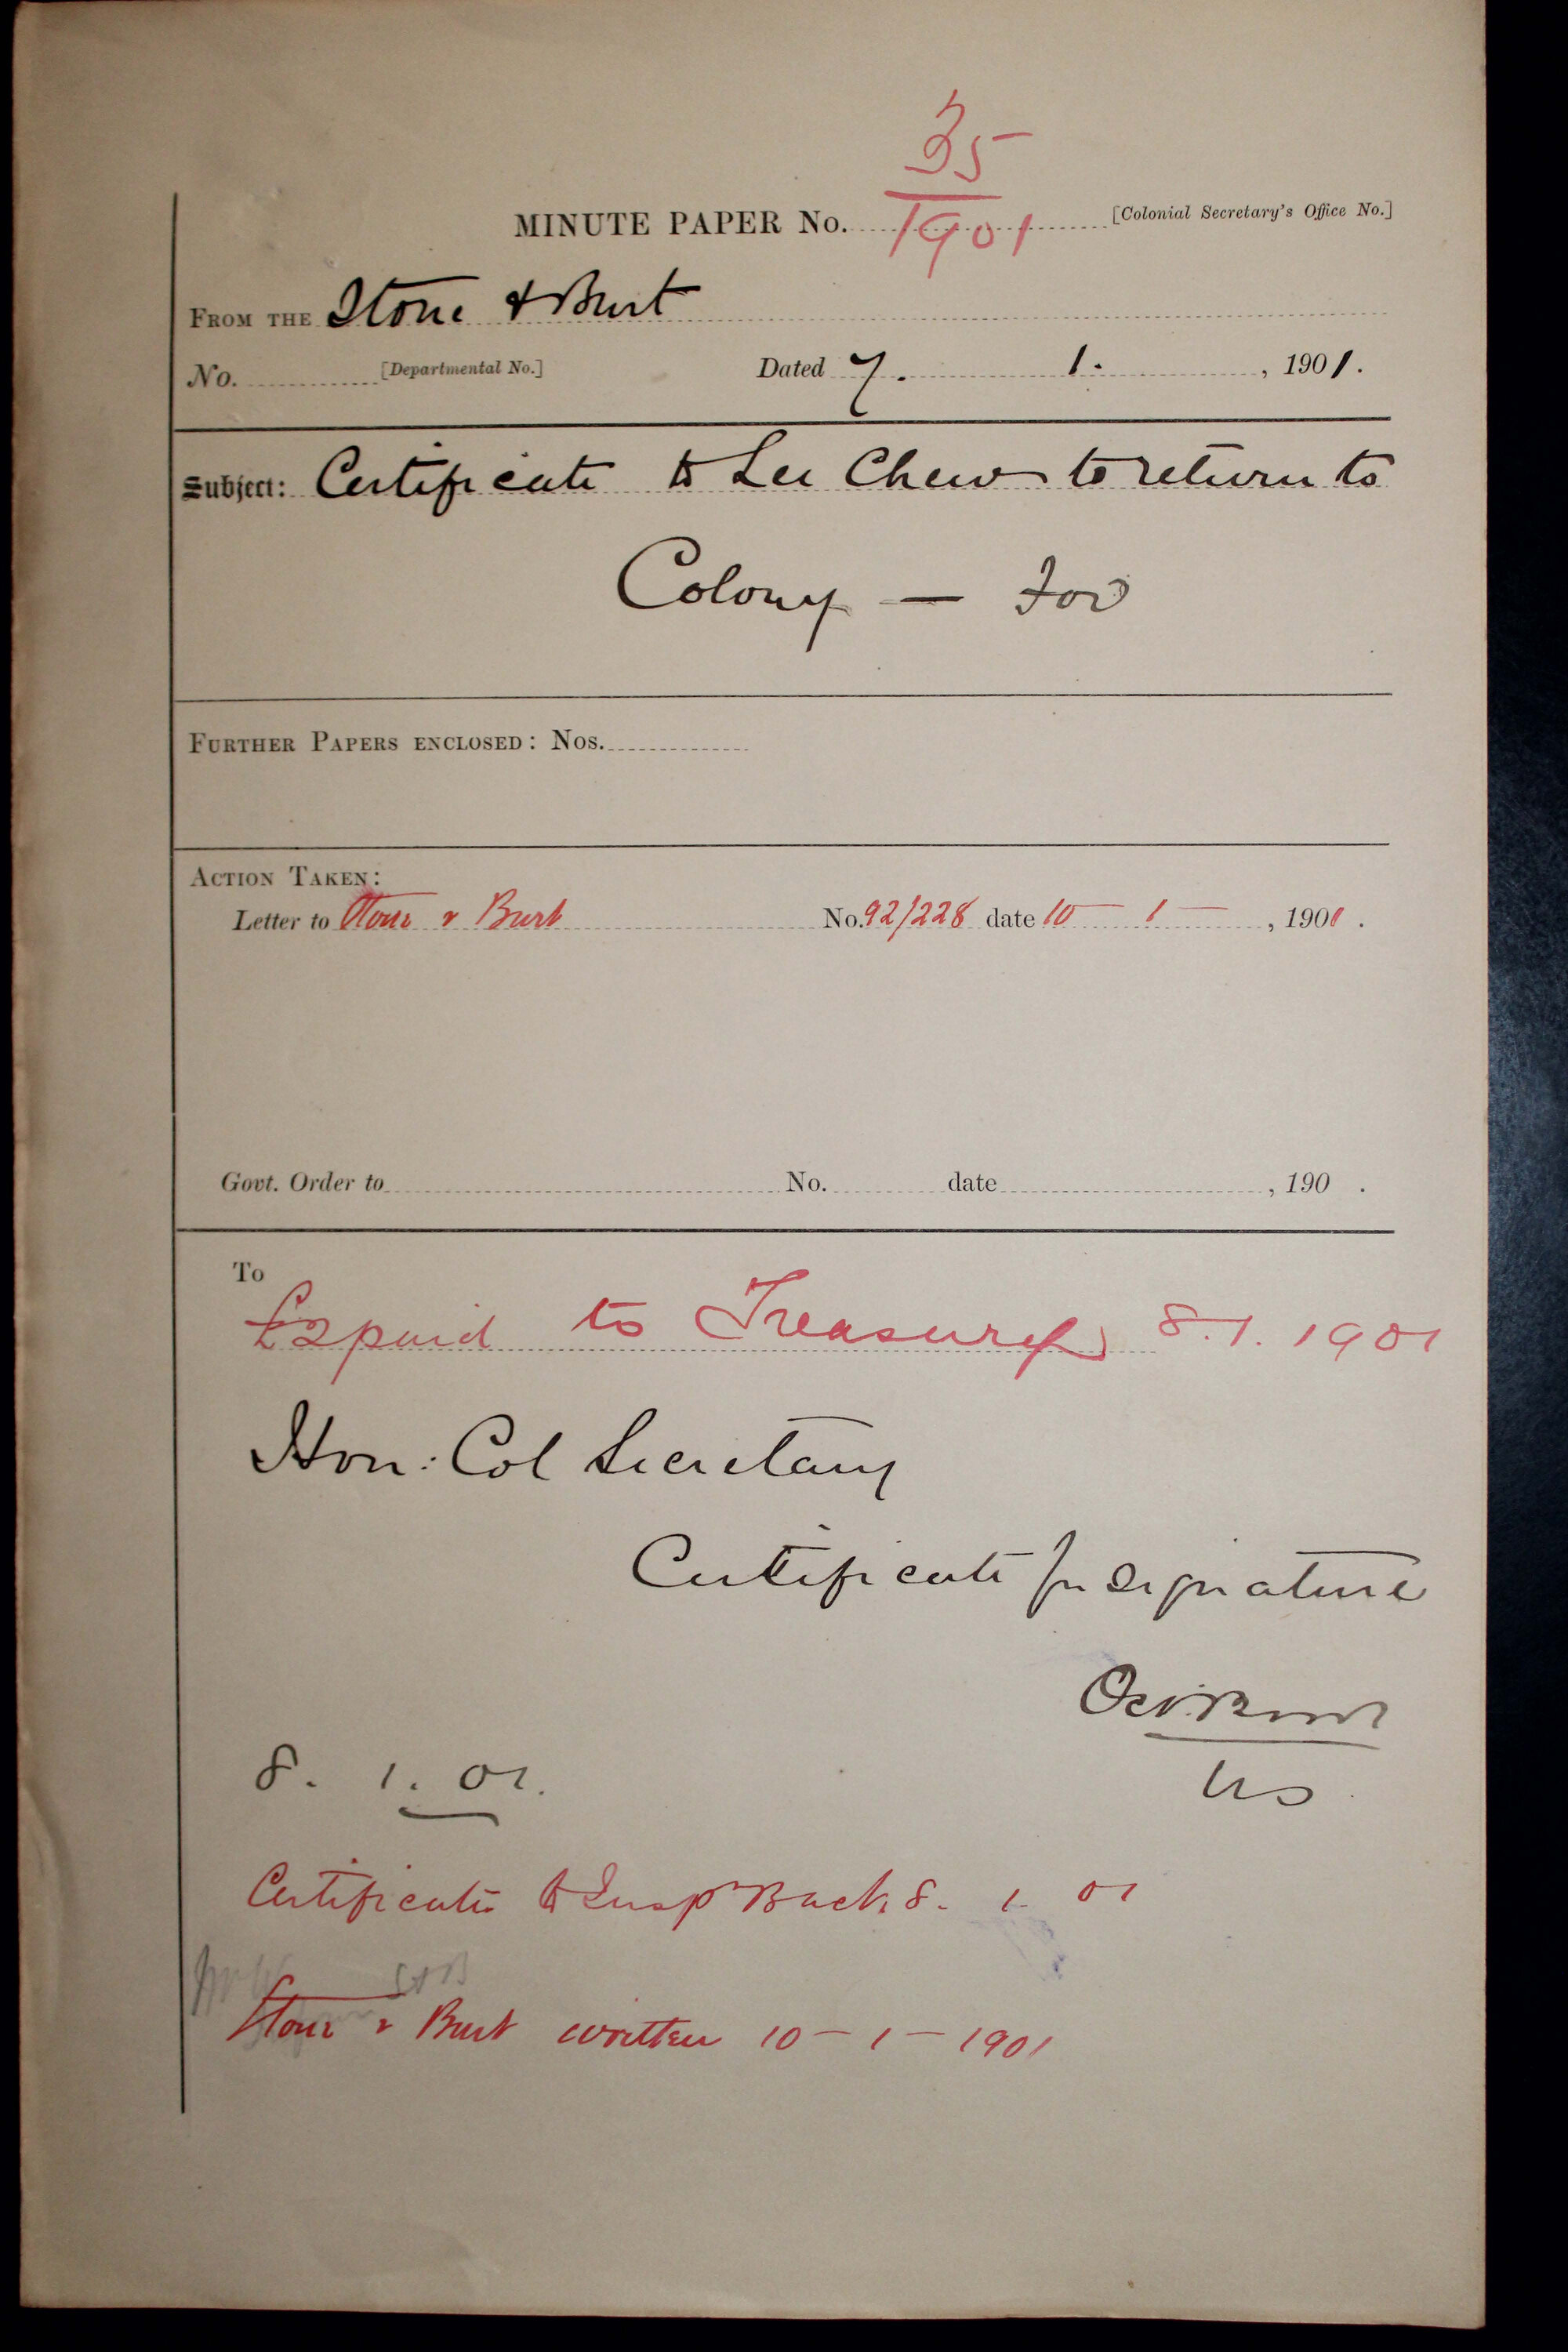 35
MINUTE PAPER No. 1901 [Colonial Secretary's Office No.]
FROM THE Stone & Burt
No. [Departmental No.] Dated 7. 1. , 1901.
Subject: Certificate to Lee Chew to return to
Colony — For
FURTHER PAPERS ENCLOSED: Nos.
ACTION TAKEN:
Letter to Stone & Burt No. 92/228 date 10 — 1 — , 1901 .
Govt. Order to No. date , 190 .
To
£2 paid to Treasury 8.1.1901
Hon: Col Secretary
Certificate for signature
US
8. 1. 01.
Certificate to Insp Back 8. 1 01
Stone & Burt written 10 — 1 — 1901